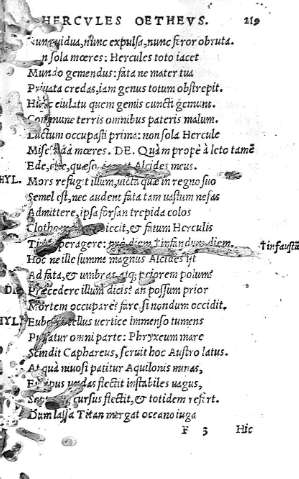 HERCVLES OETHEVS. 219
uidua, nunc expulsa, nunc feror obruta.
sola mœres: Hercules toto iacet
Mundo gemendus: fata ne mater tua
Priuata credas, iam genus totum obstrepit.
Hunc eiulatu quem gemis cuncti gemunt.
Commune terris omnibus pateris malum.
Luctum occupasti prima: non sola Hercule
Miseranda mœres. DE. Quàm propè à leto
Ede, ede, quæso, Alcides meus.
HYL. Mors refugit illum, uicta quæ in regno suo
Semel est, nec audent fata tam uastum nefas
Admittere, ipsa forsan trepida colos
Clotho iecit, & fatum Herculis
Timet peragere: prò diem infandum diem. infaustū
Hoc ne ille summe magnus Alcides
Ad fata, & umbras atque priorem
DE. Præcedere illum an possum prior
Mortem occupare? fare si nondum occidit.
HYL. tellus uertice immenso tumens
Pulsatur omni parte: Phryxeum mare
Scindit Caphareus, seruit hoc Austro latus.
At quà niuosi patitur Aquilonis minas,
Euripus undas flectit instabiles uagus,
cursus flectit, & totidem refert.
Dum lassa Titan mergat oceano iuga
F 3 Hic